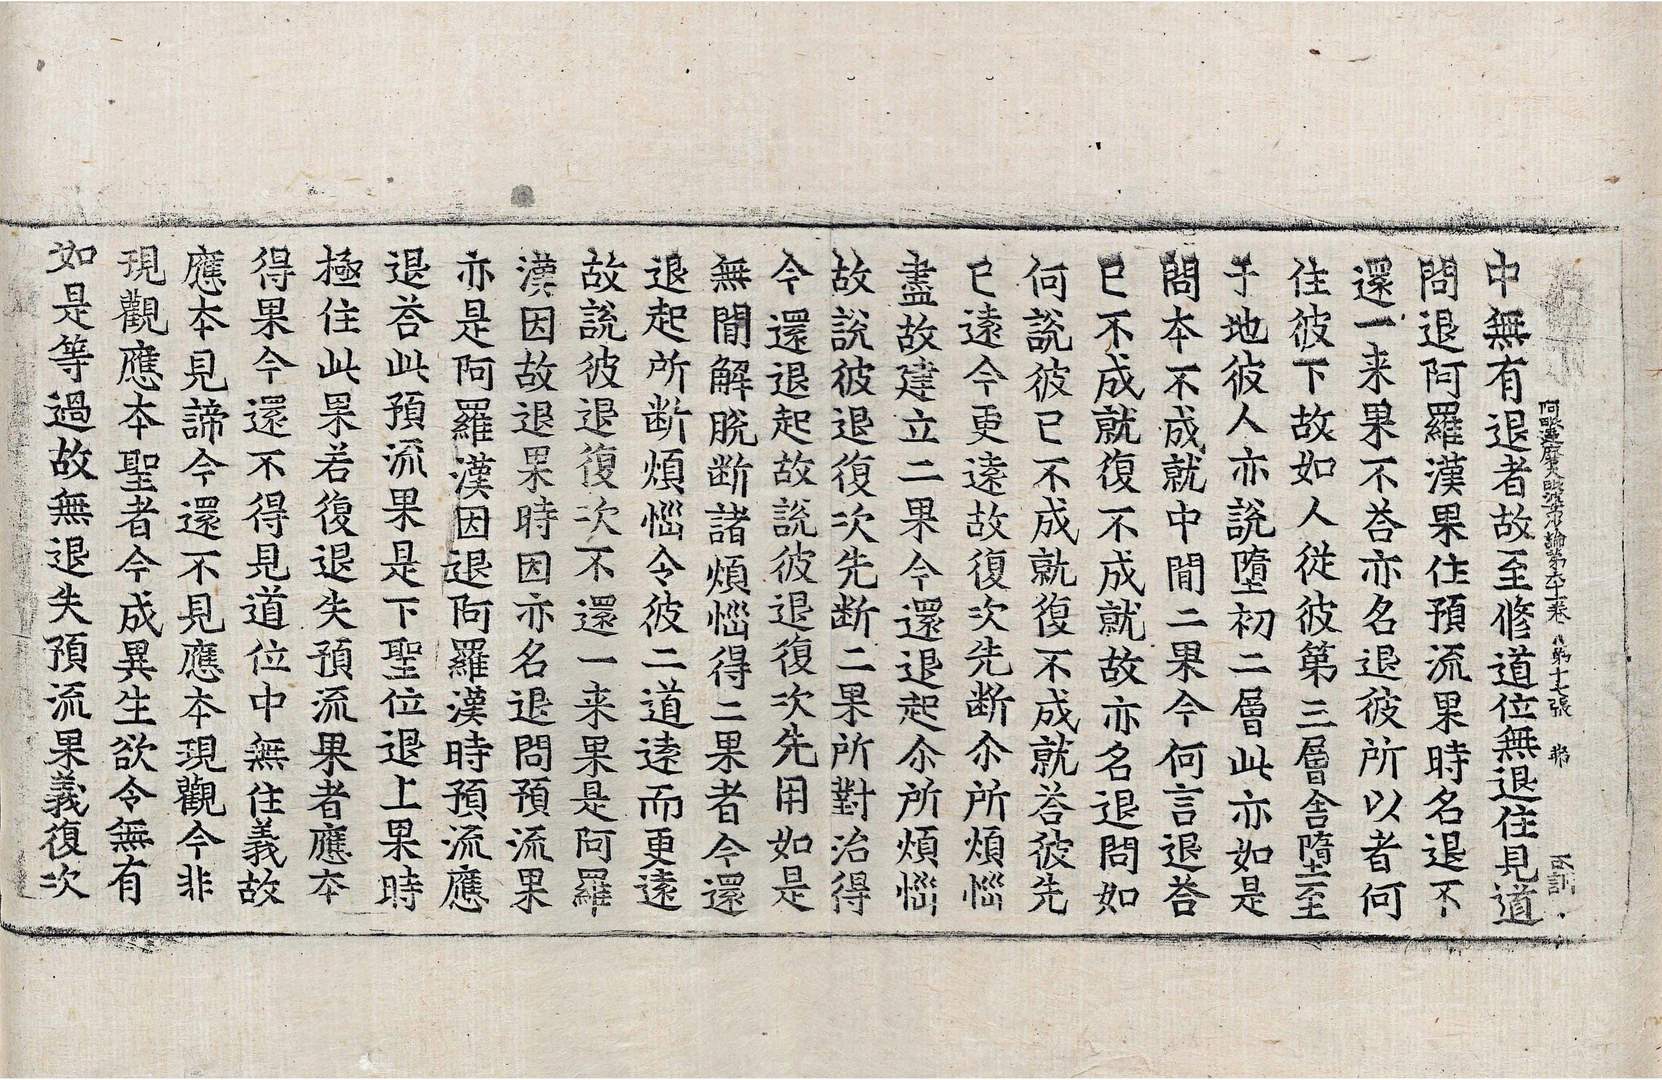 阿毗達磨大毗婆沙論第六十一卷 第十七張 弗
中無有退者故至修道位無退住見道
問退阿羅漢果住預流果時名退不
還一来果不荅亦名退彼所以者何
住彼下故如人從彼第三層舎墮至
于地彼人亦說墮初二層此亦如是
問本不成就中間二果今何言退荅
已不成就復不成就故亦名退問如
何說彼已不成就復不成就荅彼先
已逺今更逺故復次先断尒所煩惱
盡故建立二果今還退起尒所煩惱
故說彼退復次先断二果所對治得
今還退起故說彼退復次先用如是
無間解脫断諸煩惱得二果者今還
退起所断煩惱令彼二道逺而更逺
故說彼退復次不還一来果是阿羅
漢因故退果時因亦名退問預流果
亦是阿羅漢因退阿羅漢時預流應
退荅此預流果是下聖位退上果時
極住此果若復退失預流果者應本
得果今還不得見道位中無住義故
應本見諦今還不見應本現觀今非
現觀應本聖者今成異生欲令無有
如是等過故無退失預流果義復次